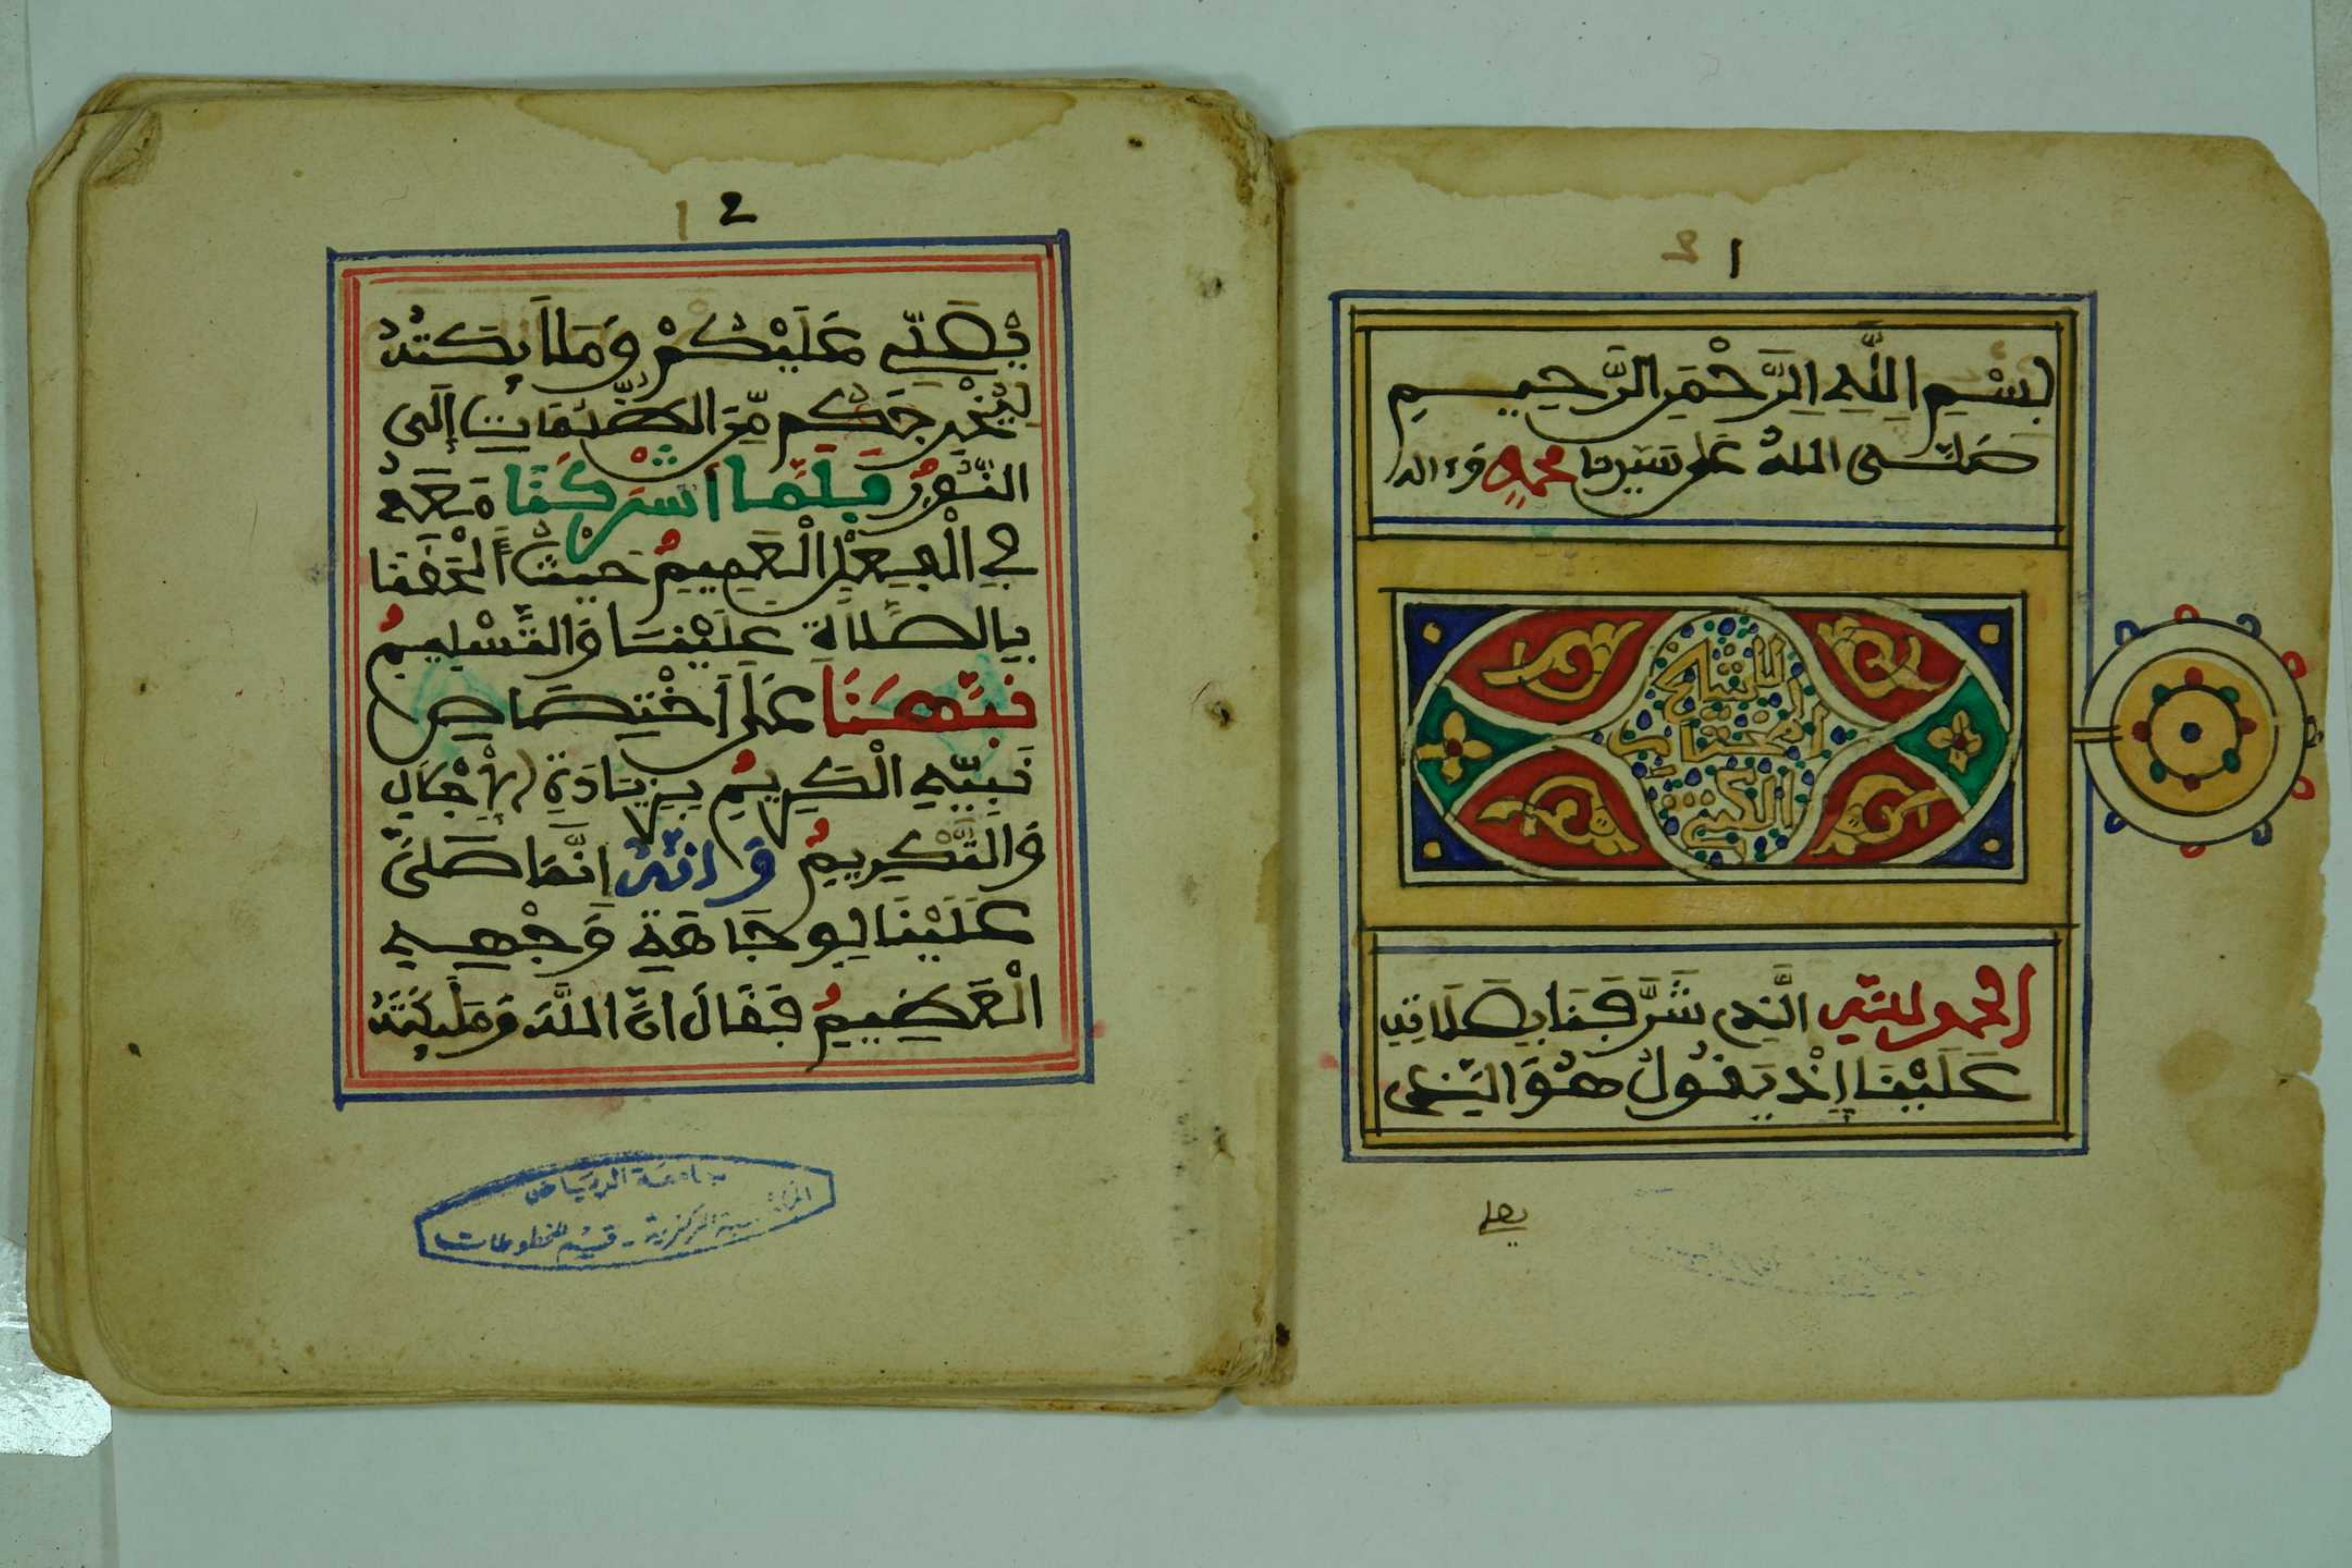 ١
بِسْمِ اللَّهِ الرَّحْمَنِ الرَّحِيمِ
صَلَّى اللهُ عَلَى سَيِّدِنَا مُحَمَّدٍ وَءَالِهِ
الحمد لله الَّذِي شَرَّفَنَا بِصَلَاتِهِ
عَلَيْنَا إِذْ يَقُولُ هُوَ الَّذِي
يصلي
٢
يُصَلِّي عَلَيْكُمْ وَمَلَائِكَتُهُ
لِيُخْرِجَكُم مِّنَ الظُّلُمَاتِ إِلَى
النُّورِ فَلَمَّا أَشْرَكَنَا مَعَهُ
فِي الْفِعْلِ الْعَمِيمِ حَيْثُ أَتْحَفَنَا
بِالصَّلَاةِ عَلَيْنَا وَالتَّسْلِيمِ
نَبَّهَنَا عَلَى اخْتِصَاصِ
نَبِيِّهِ الْكَرِيمِ بِزِيَادَةِ الْإِجْلَالِ
وَالتَّكْرِيمِ وَأَنَّهُ إِنَّمَا صَلَّى
عَلَيْنَا لِوَجَاهَةِ وَجْهِهِ
الْعَظِيمِ فَقَالَ إِنَّ اللَّهَ وَمَلَائِكَتَهُ
جامعة الرياض
المركزية - قسم المخطوطات